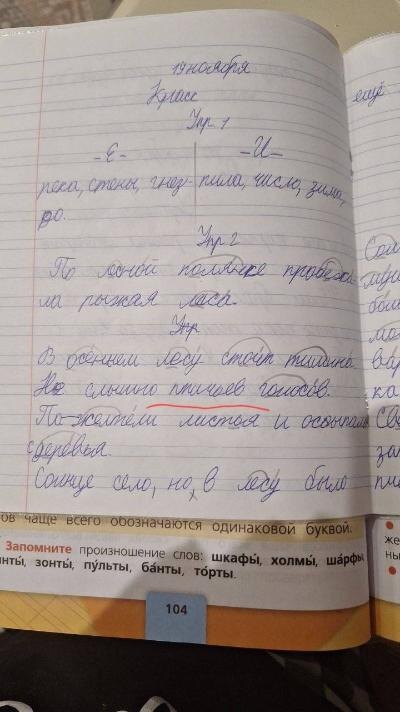 19 ноября
Класс
Упр. 1
-Е- -И-
река, стены, гнез- пила, число, зима,
до.
Упр 2
По лесной полянке пробежа-
ла рыжая лиса.
Упр
В осеннем лесу стоит тишина.
Не слышно птичьев голосов.
По-желтели листья и осыпали
с деревья.
Солнце село, но, в лесу было
ещё
ов чаще всего обозначаются одинаковой буквой.
Запомните произношение слов: шкафы́, холмы́, ша́рфы,
инты́, зонты́, пу́льты, ба́нты, то́рты.
104